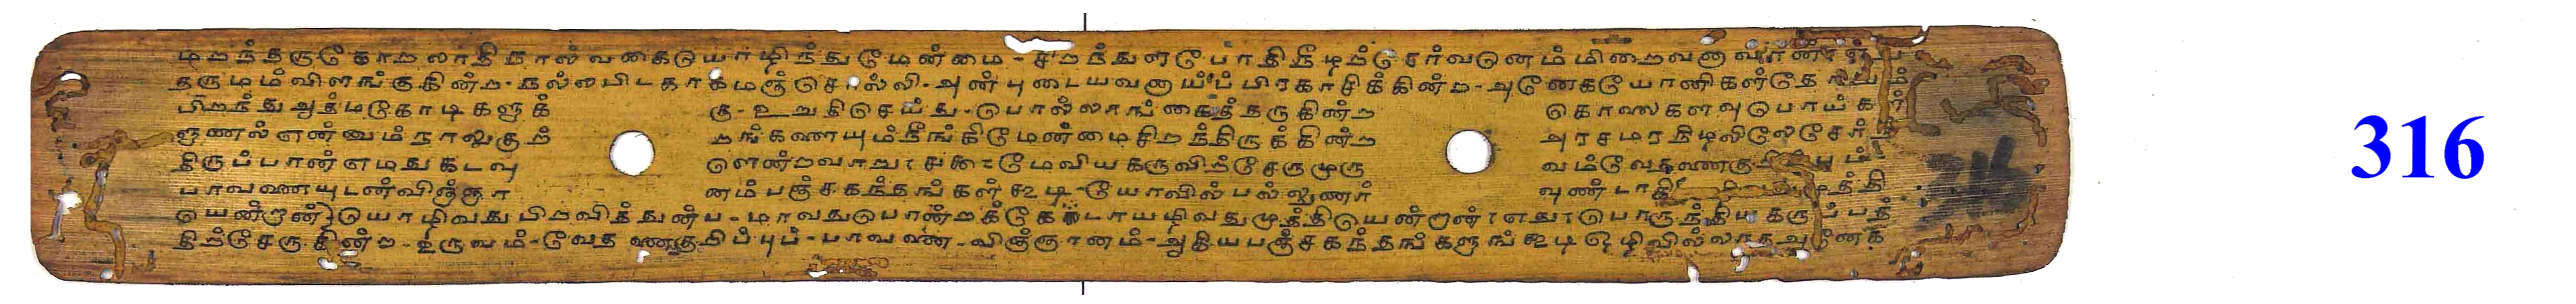 டிறந்தருகோறலாதி நால்வகை யொழிந்து மேன்மை - சிறந்துளபோதிநீழற்சேர்வனெம்மிறைவனாவான்
தருமம்விளங்குகின்ற - நல்லபிடகாகமஞ்சொல்லி - அன்புடையவனாய்ப் பிரகாசிக்கின்ற - அனேகயோனிகள்தோறும்
பிறந்து அத்மகோடிகளுக் கு - உறுதிசெய்து - பொல்லாங்கைத்தருகின்ற கொலைகளவுபொய்கள்
ஞணல் என்னும் நாலுகுற் றங்களையும் நீங்கி மேன்மைசிறந்திருக்கின்ற அரசமரநிழலிலேசேர்ந்
திருப்பான் எமதுகடவு ளென்றவாறு; ௩௬; மேவியகருவிற்சேருமுரு வம்வேதனைகு
பாவனையுடன்விஞ்ஞா னம்பஞ்சகந்தங்கள் கூடி - யோவில்பல்லுணர் வுண்டாகி முத்தி
யென்றான்; யொழிவதுபிறவித்துன்ப - மாவதுபொன்றக்கேடாயழிவதுமுத்தியென்றான்; எது; பொருந்தியகருப்பத்
திற்சேருகின்ற - உருவம் - வேதனைகுறிப்புப் - பாவனை - விஞ்ஞானம் - ஆகியபஞ்சகந்தங்களுங்கூடி ஒழிவில்லாத அனேக
316